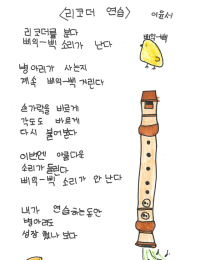 <리코더 연습>
이윤서
리코더를 분다
삐익-삑 소리가 난다
삐익-삑
병아리가 사는지
계속 삐익-삑 거린다
손가락을 바르게
각도도 바르게
다시 불어봤다
이번엔 아름다운
소리가 들린다
삐익-삑 소리가 안 난다
내가 연습하는동안
병아리도
성장 했나 보다